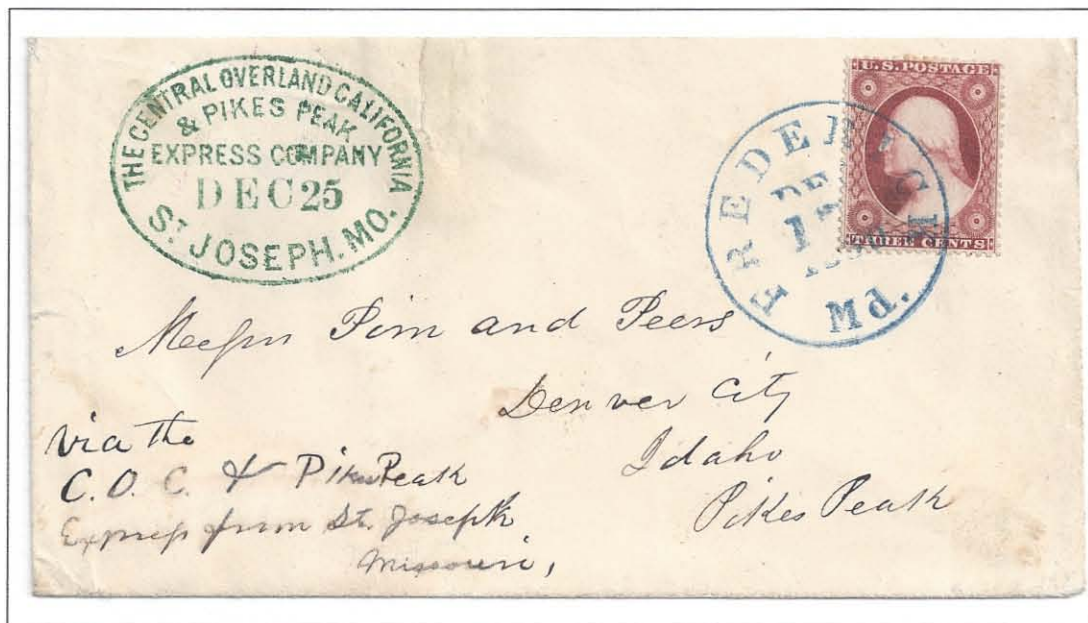 THE CENTRAL OVERLAND CALIFORNIA
& PIKES PEAK
EXPRESS COMPANY
DEC 25
ST JOSEPH. MO.
U.S. POSTAGE
THREE CENTS
FREDERICK
DEC
Md.
Messrs Pim and Peers
Denver City
Idaho
Pikes Peak
via the
C. O. C. & Pikes Peak
Express from St. Joseph
Missouri,